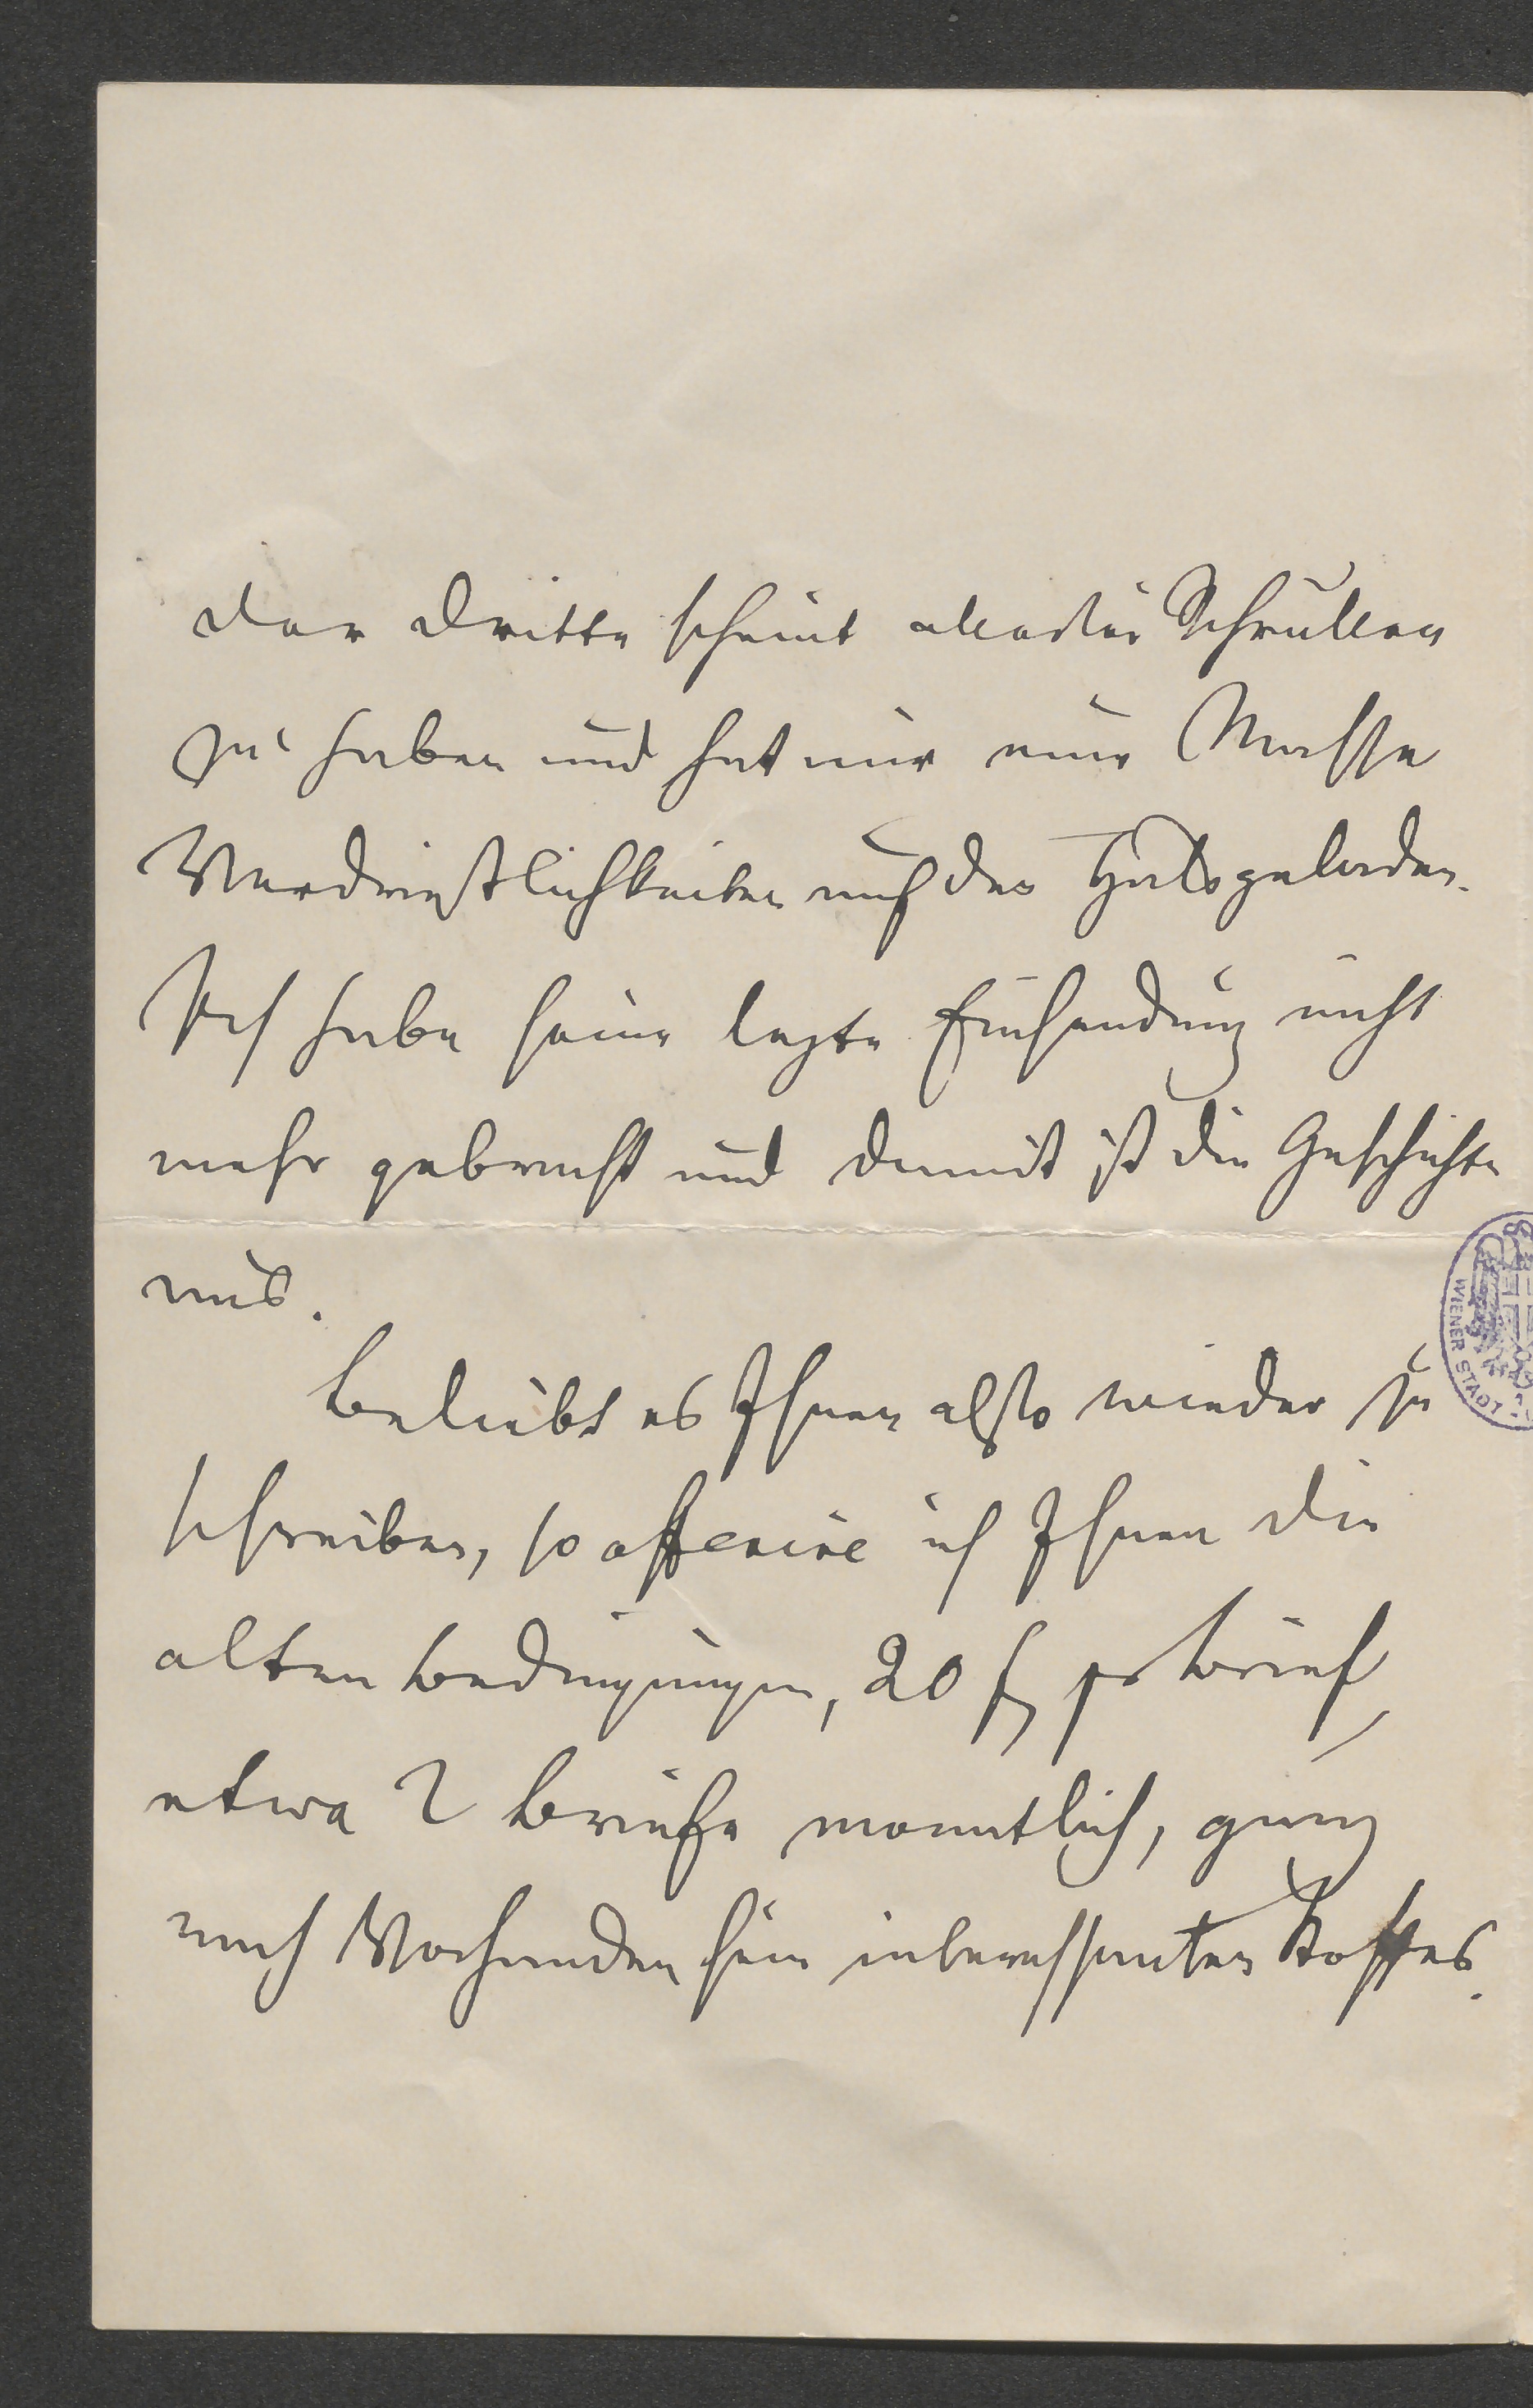 der Dritte scheint allerlei Schrullen
zu haben und hat mir eine Masse
Verdrießlichkeiten auf den Hals geladen.
Ich habe seine lezte Einsendung nicht
mehr gebracht und damit ist die Geschichte
aus.
Beliebt es Ihnen also wieder zu
schreiben, so offerire ich Ihnen die
alten Bedingungen, 20 f pr Brief,
etwa 2 Briefe monatlich, ganz
nach Vorhandensein interessanten Stoffes.
WIENER STADT-